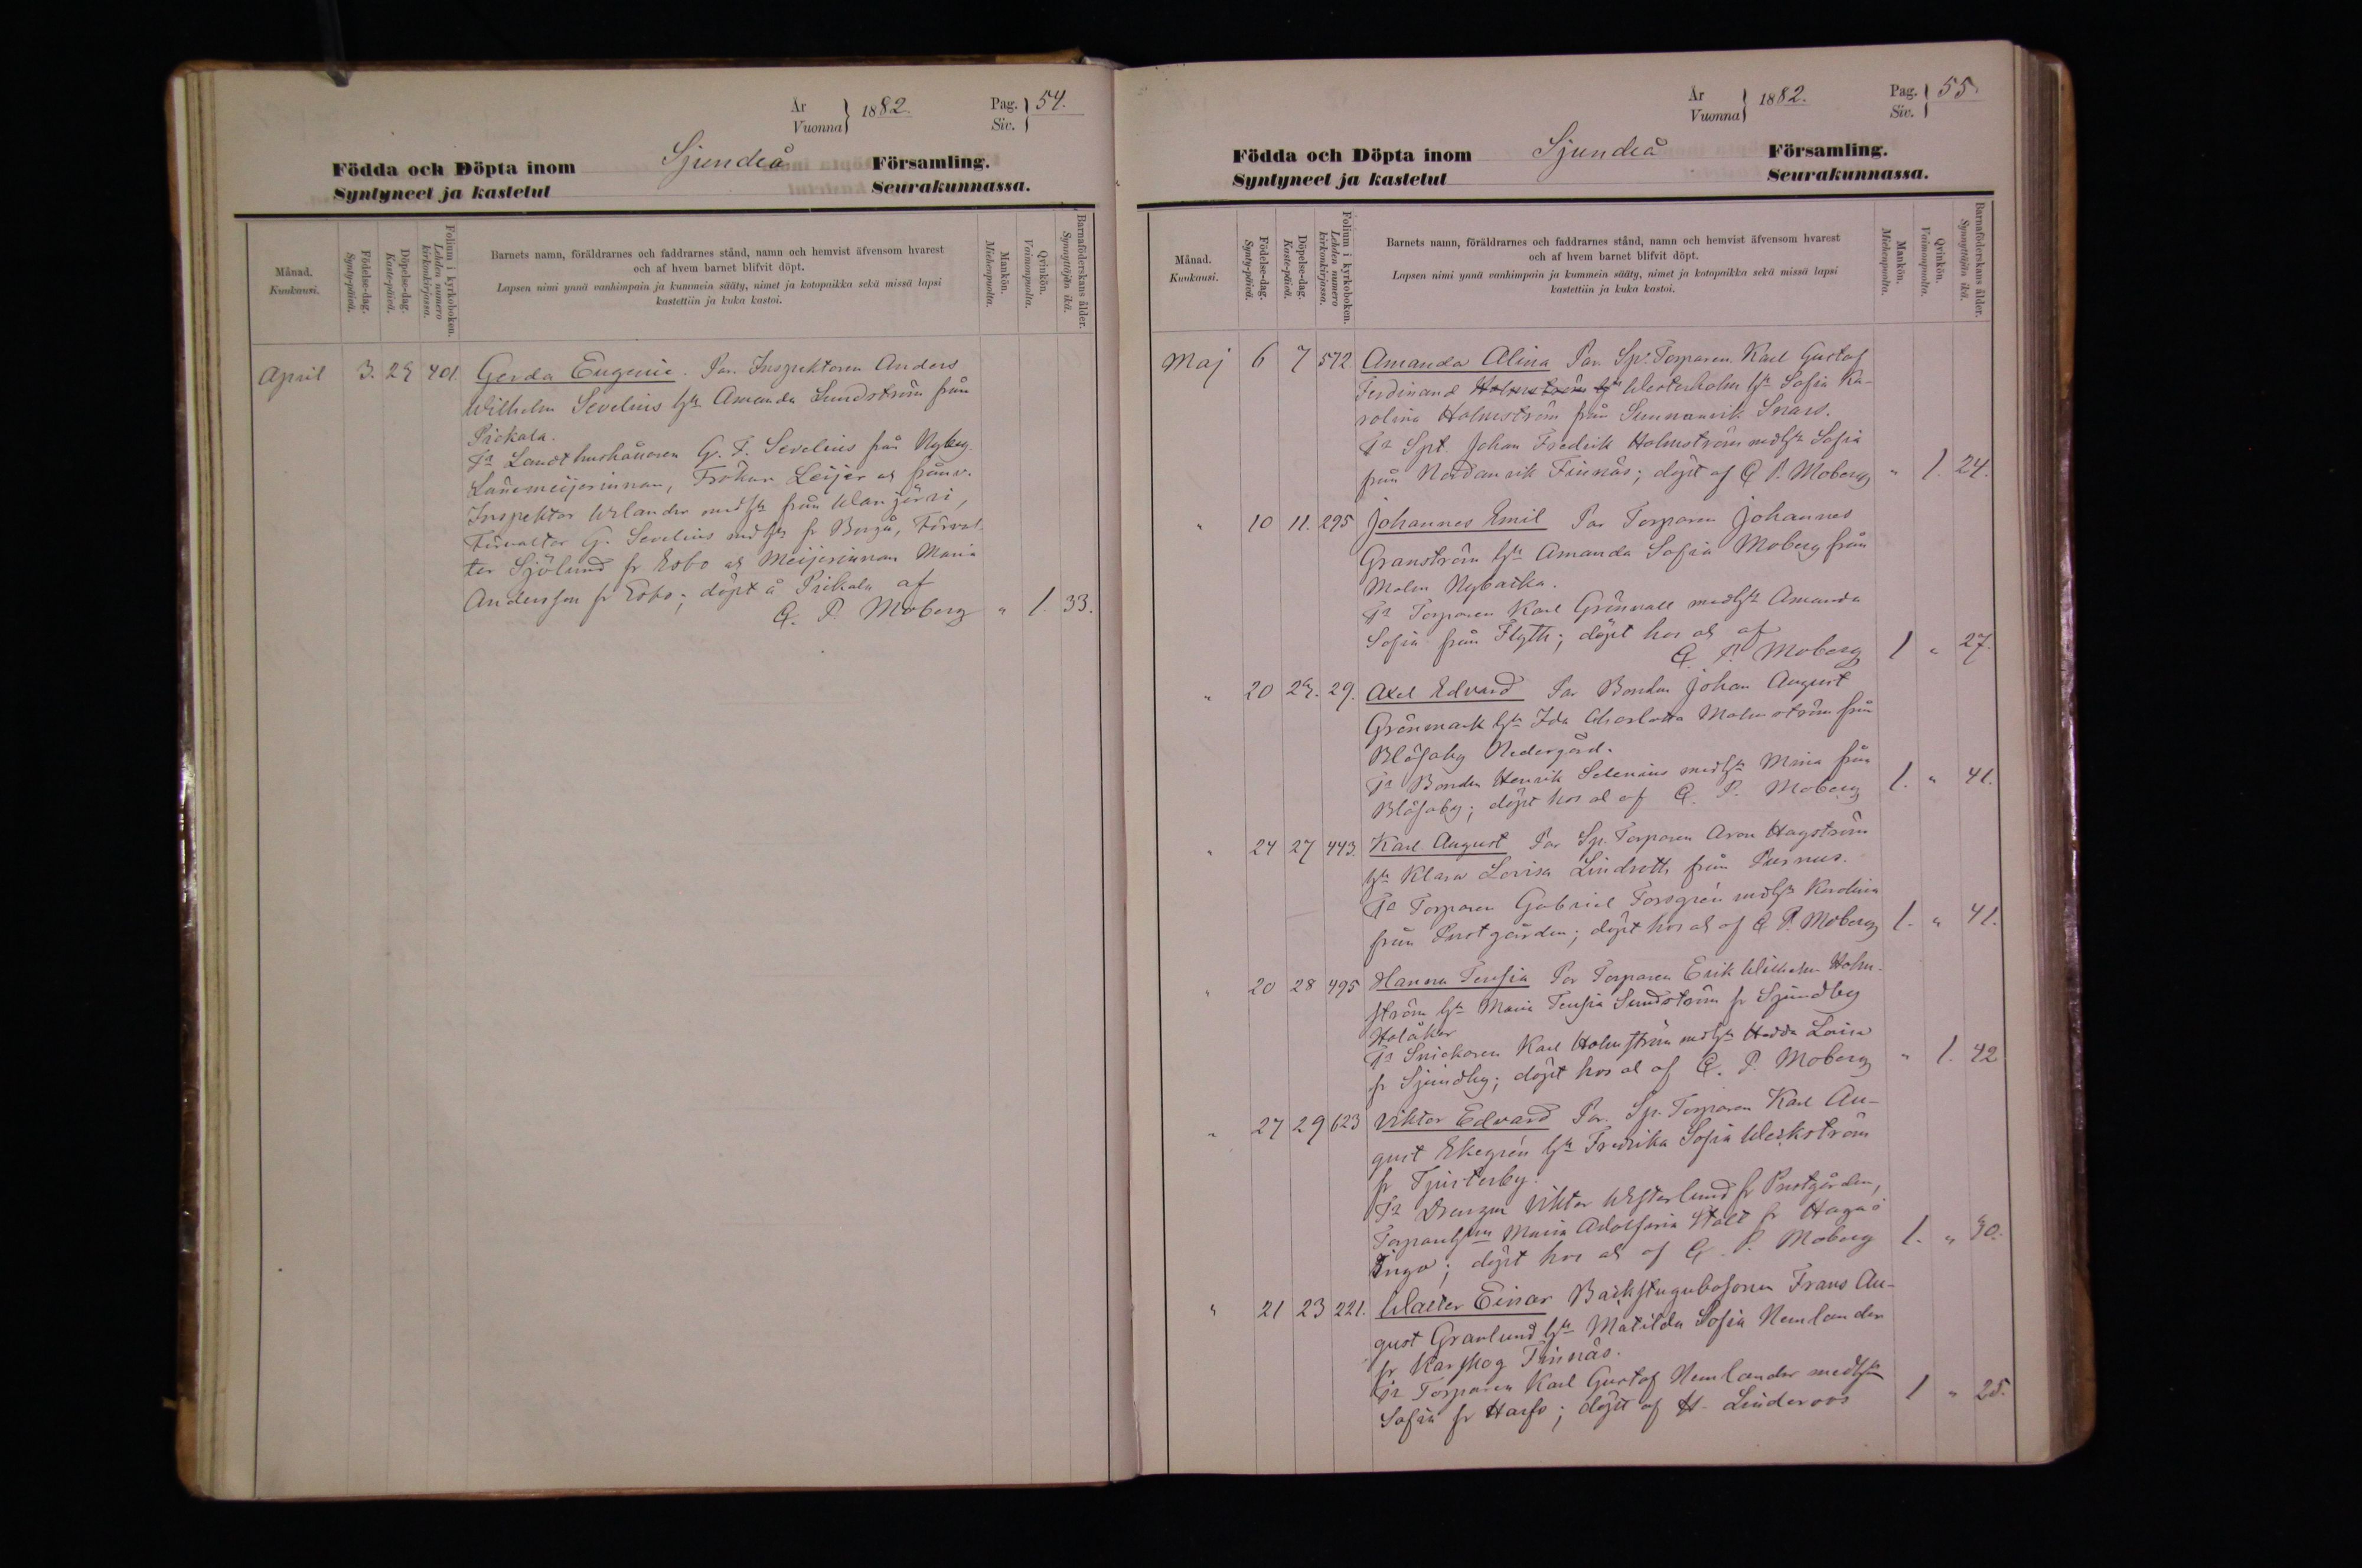 År
Vuonna } 1882.
Pag.
Siv. } 54.
Födda och Döpta inom Sjundeå Församling.
Syntyneet ja kastetut Seurakunnassa.
Månad.
Kuukausi.
Födelse-dag.
Synty-päivä.
Döpelse-dag.
Kaste-päivä.
Folium i kyrkoboken.
Lehden numero
kirkonkirjassa.
Barnets namn, föräldrarnes och faddrarnes stånd, namn och hemvist äfvensom hvarest
och af hvem barnet blifvit döpt.
Lapsen nimi ynnä vanhimpain ja kummein sääty, nimet ja kotopaikka sekä missä lapsi
kastettiin ja kuka kastoi.
Mankön.
Miehenpuolta.
Qvinkön.
Vaimonpuolta.
Barnaföderskans ålder.
Synnyttäjän ikä.
April 3. 29 401 Gerda Eugenie. Par. Inspektoren Anders
Wilhelm Sevelius hu Amanda Sundström från
Pickala.
Fr Landthushållaren G. F. Sevelius från Nyby
Lånemeijerinnan, Fröken Leijer
Inspektor Welander med hu från
Förvalter G. Sevelius med hu fr Borgå, Förval-
ter Sjölund fr Esbo ch Meijerinnan Maria
Andersson fr Esbo; döpt å Pickala af
G. P. Moberg " 1. 33.
År
Vuonna } 1882.
Pag.
Siv. } 55
Födda och Döpta inom Sjundeå Församling.
Syntyneet ja kastetut Seurakunnassa.
Månad.
Kuukausi.
Födelse-dag.
Synty-päivä.
Döpelse-dag.
Kaste-päivä.
Folium i kyrkoboken.
Lehden numero
kirkonkirjassa.
Barnets namn, föräldrarnes och faddrarnes stånd, namn och hemvist äfvensom hvarest
och af hvem barnet blifvit döpt.
Lapsen nimi ynnä vanhimpain ja kummein sääty, nimet ja kotopaikka sekä missä lapsi
kastettiin ja kuka kastoi.
Mankön.
Miehenpuolta.
Qvinkön.
Vaimonpuolta.
Barnaföderskans ålder.
Synnyttäjän ikä.
Maj 6 7 572 Amanda Alina Par. Sp. Torparen Karl Gustaf
Ferdinand Holmström hu Westerholm hu Sofia Ka-
rolina Holmström från Sunnanvik Snars.
Fr Spt. Johan Fredrik Holmström med hu Sofia
från Nordanvik Finnäs; döpt af G P. Moberg " 1. 24.
" 10 11. 295 Johannes Emil Par Torparen Johannes
Granström hu Amanda Sofia Moberg från
Malm Nybacka.
Fr Torparen Karl Grönvall med hu Amanda
Sofia från Flyth; döpt hos ds af
G. P. Moberg 1 " 27.
" 20 29. 29. Axel Edvard Par Bonden Johan August
Grönmark hu Ida Charlotta Malmström från
Blåsaby Nedergård.
Fr Bonden Henrik Selenius med hu Mina från
Blåsaby; döpt hos ds af G. P. Moberg 1. " 41.
" 24 27 443. Karl August Par Sp. Torparen Aron Hagström
hu Klara Lovisa Lindroth från Purnus.
Fr Torparen Gabriel Forsgrén med hu Karolina
från Prestgården; döpt hos ds af G P. Moberg 1. " 41.
" 20 28 495 Hanna Teresia Par Torparen Erik Wilhelm Holm-
ström hu Maria Teresia Sundström fr Sjundby
Holåker
Fr Snickaren Karl Holmström med hu Hedda Lovisa
fr Sjundby; döpt hos ds af G. P. Moberg " 1. 42
" 27 29 623 Viktor Edvard Par. Sp. Torparen Karl Au-
gust Ekegrén hu Fredrika Sofia Weckström
fr Tjusterby.
Fr Drengen Viktor Westerlund fr Prestgården,
Maria Adolfina Stålt fr
Ingo; döpt hos ds af G. P. Moberg 1. " 30.
" 21 23 221. Walter Einar Backstugubosonen Frans Au-
gust Granlund hu Matilda Sofia Nemlander
fr Karskog Finnäs.
Fr Torparen Karl Gustaf Nemlander med hu
Sofia fr Harfs; döpt af H. Linderoos 1 " 25.